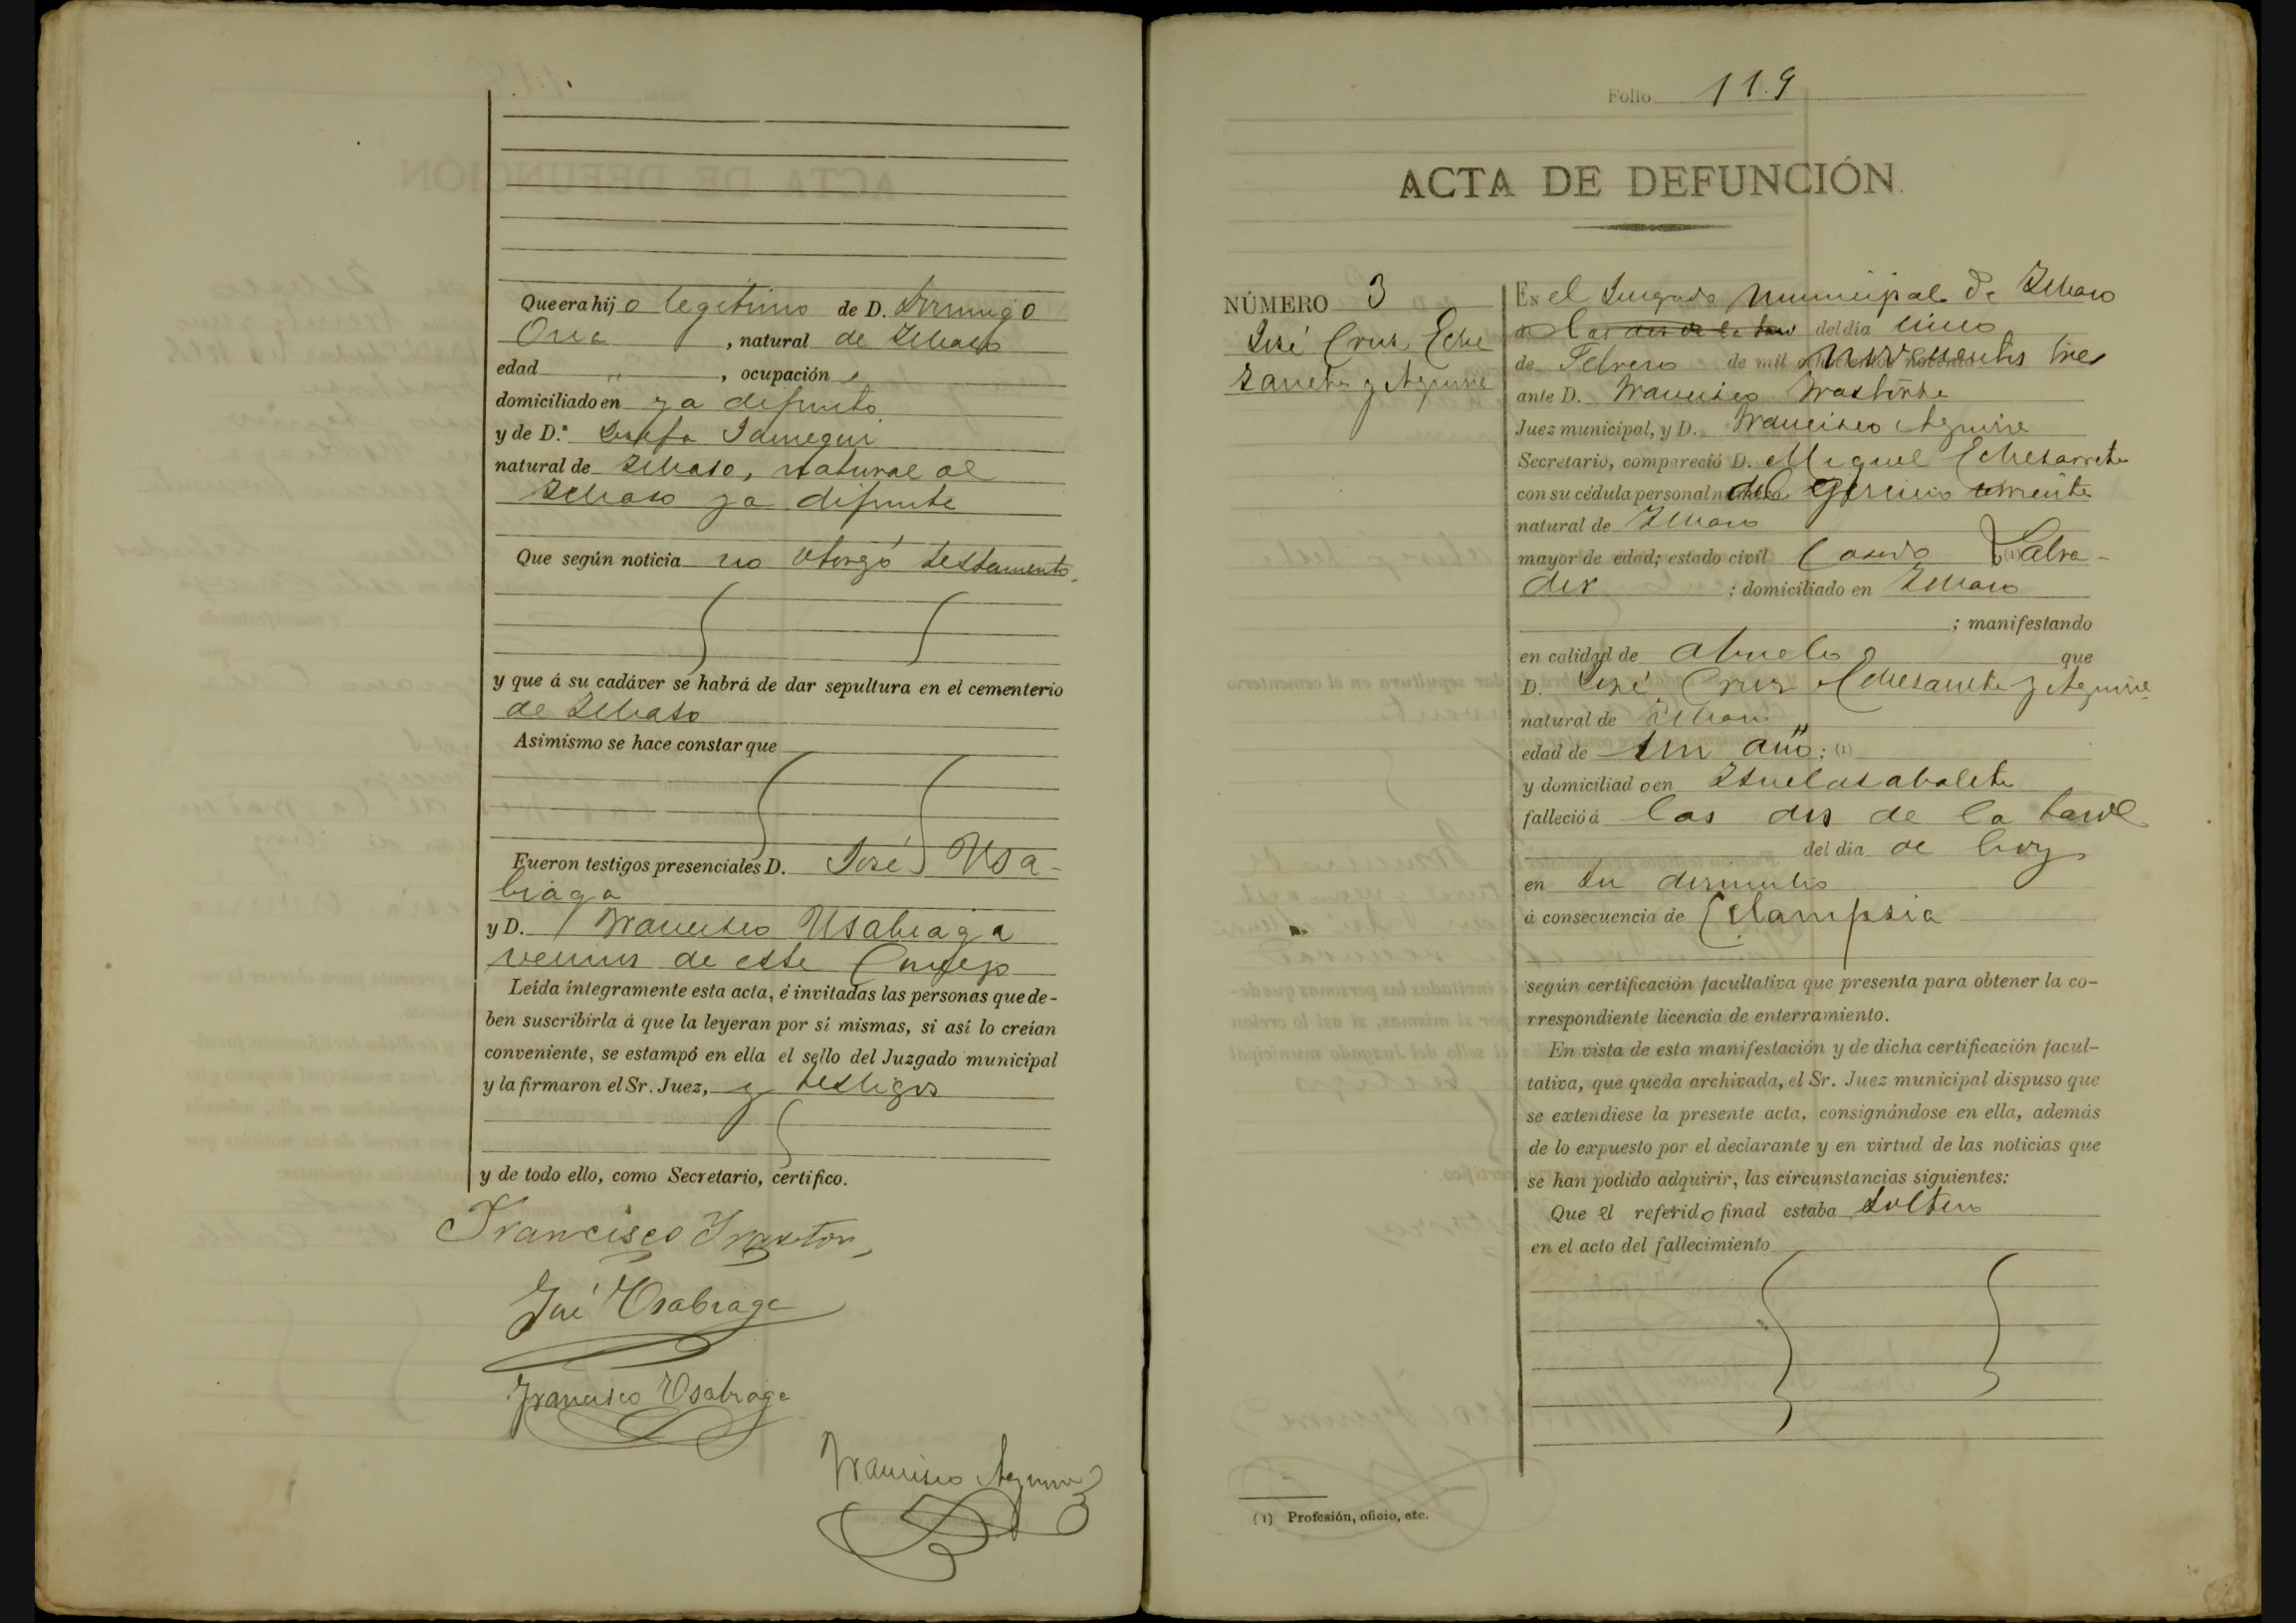 Que era hijo legitimo de D. Domingo
Oria, natural de Idiazabal
edad " , ocupación "
domiciliado en ya difunto
y de D.ª Josefa Jauregui
natural de natural de
ya difunta
Que según noticia no otorgó testamento.
y que á su cadáver se habrá de dar sepultura en el cementerio
de
Asimismo se hace constar que
Fueron testigos presenciales D. José Usa-
biaga
y D. Francisco Usabiaga
vecinos de este Concejo
Leída íntegramente esta acta, é invitadas las personas que de-
ben suscribirla á que la leyeran por sí mismas, si así lo creían
conveniente, se estampó en ella el sello del Juzgado municipal
y la firmaron el Sr. Juez, y testigos
y de todo ello, como Secretario, certifico.
Francisco Irastor
José Usabiaga
Francisco Usabiaga
Francisco Aguirre
Folio 119
ACTA DE DEFUNCIÓN.
NÚMERO 3
José Cruz Eche
zarreta y Aguirre
En el Juzgado municipal de
á las dos de la tarde del día cinco
de Febrero de mil novecientos tres
ante D. Francisco Irastorza
Juez municipal, y D. Francisco Aguirre
Secretario, compareció D. Miguel Echezarreta
con su cédula personal número del ejercicio corriente
natural de
mayor de edad; estado civil Casado (1) Labra-
dor ; domiciliado en
; manifestando
en calidad de Abuelo que
D. José Cruz Echezarreta y Aguirre
natural de
edad de un año; (1)
y domiciliado en
falleció á las dos de la tarde
del día de hoy
en su domicilio
á consecuencia de Eclampsia
según certificación facultativa que presenta para obtener la co-
rrespondiente licencia de enterramiento.
En vista de esta manifestación y de dicha certificación facul-
tativa, que queda archivada, el Sr. Juez municipal dispuso que
se extendiese la presente acta, consignándose en ella, además
de lo expuesto por el declarante y en virtud de las noticias que
se han podido adquirir, las circunstancias siguientes:
Que el referido finad estaba soltero
en el acto del fallecimiento
(1) Profesión, oficio, etc.